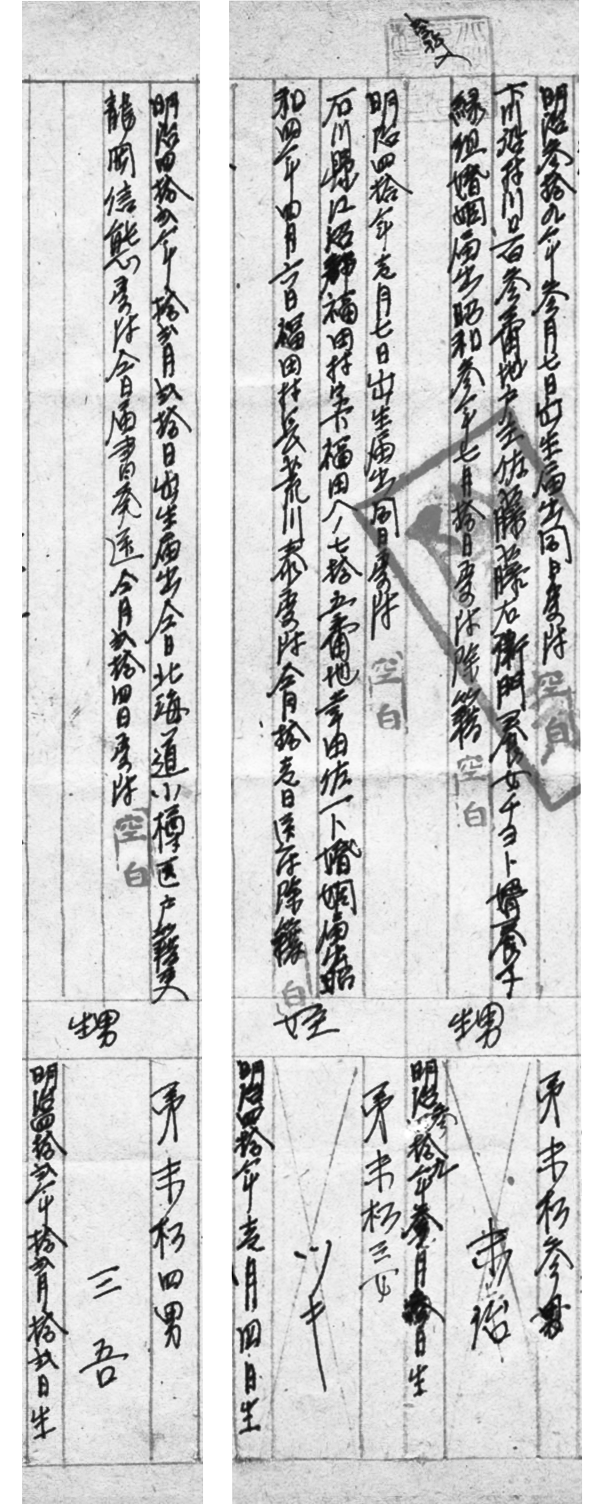 明治参拾九年参月七日出生届出同日受附 空白
番地戸主佐藤藤右衛門養女チヨト婿養子
縁組婚姻届出昭和参年七月拾日受附除籍 空白
甥
弟末松参男
末治
明治参拾九年参月日生
明治四拾年壱月七日出生届出同日受附 空白
石川県江沼郡福田村字下福田八ノ七拾五番地幸田佐一ト婚姻届出昭
和四年四月六日福田村長荒川泰受附仝月拾壱日送付除籍 白
姪
弟末松三女
ツキ
明治四拾年壱月四日生
明治四拾弐年拾弐月弐拾日出生届出仝日北海道小樽区戸籍吏
龍岡信熊受附仝日届書発送仝月弐拾四日受附 空白
甥
弟末松四男
三吾
明治四拾弐年拾弐月拾弐日生